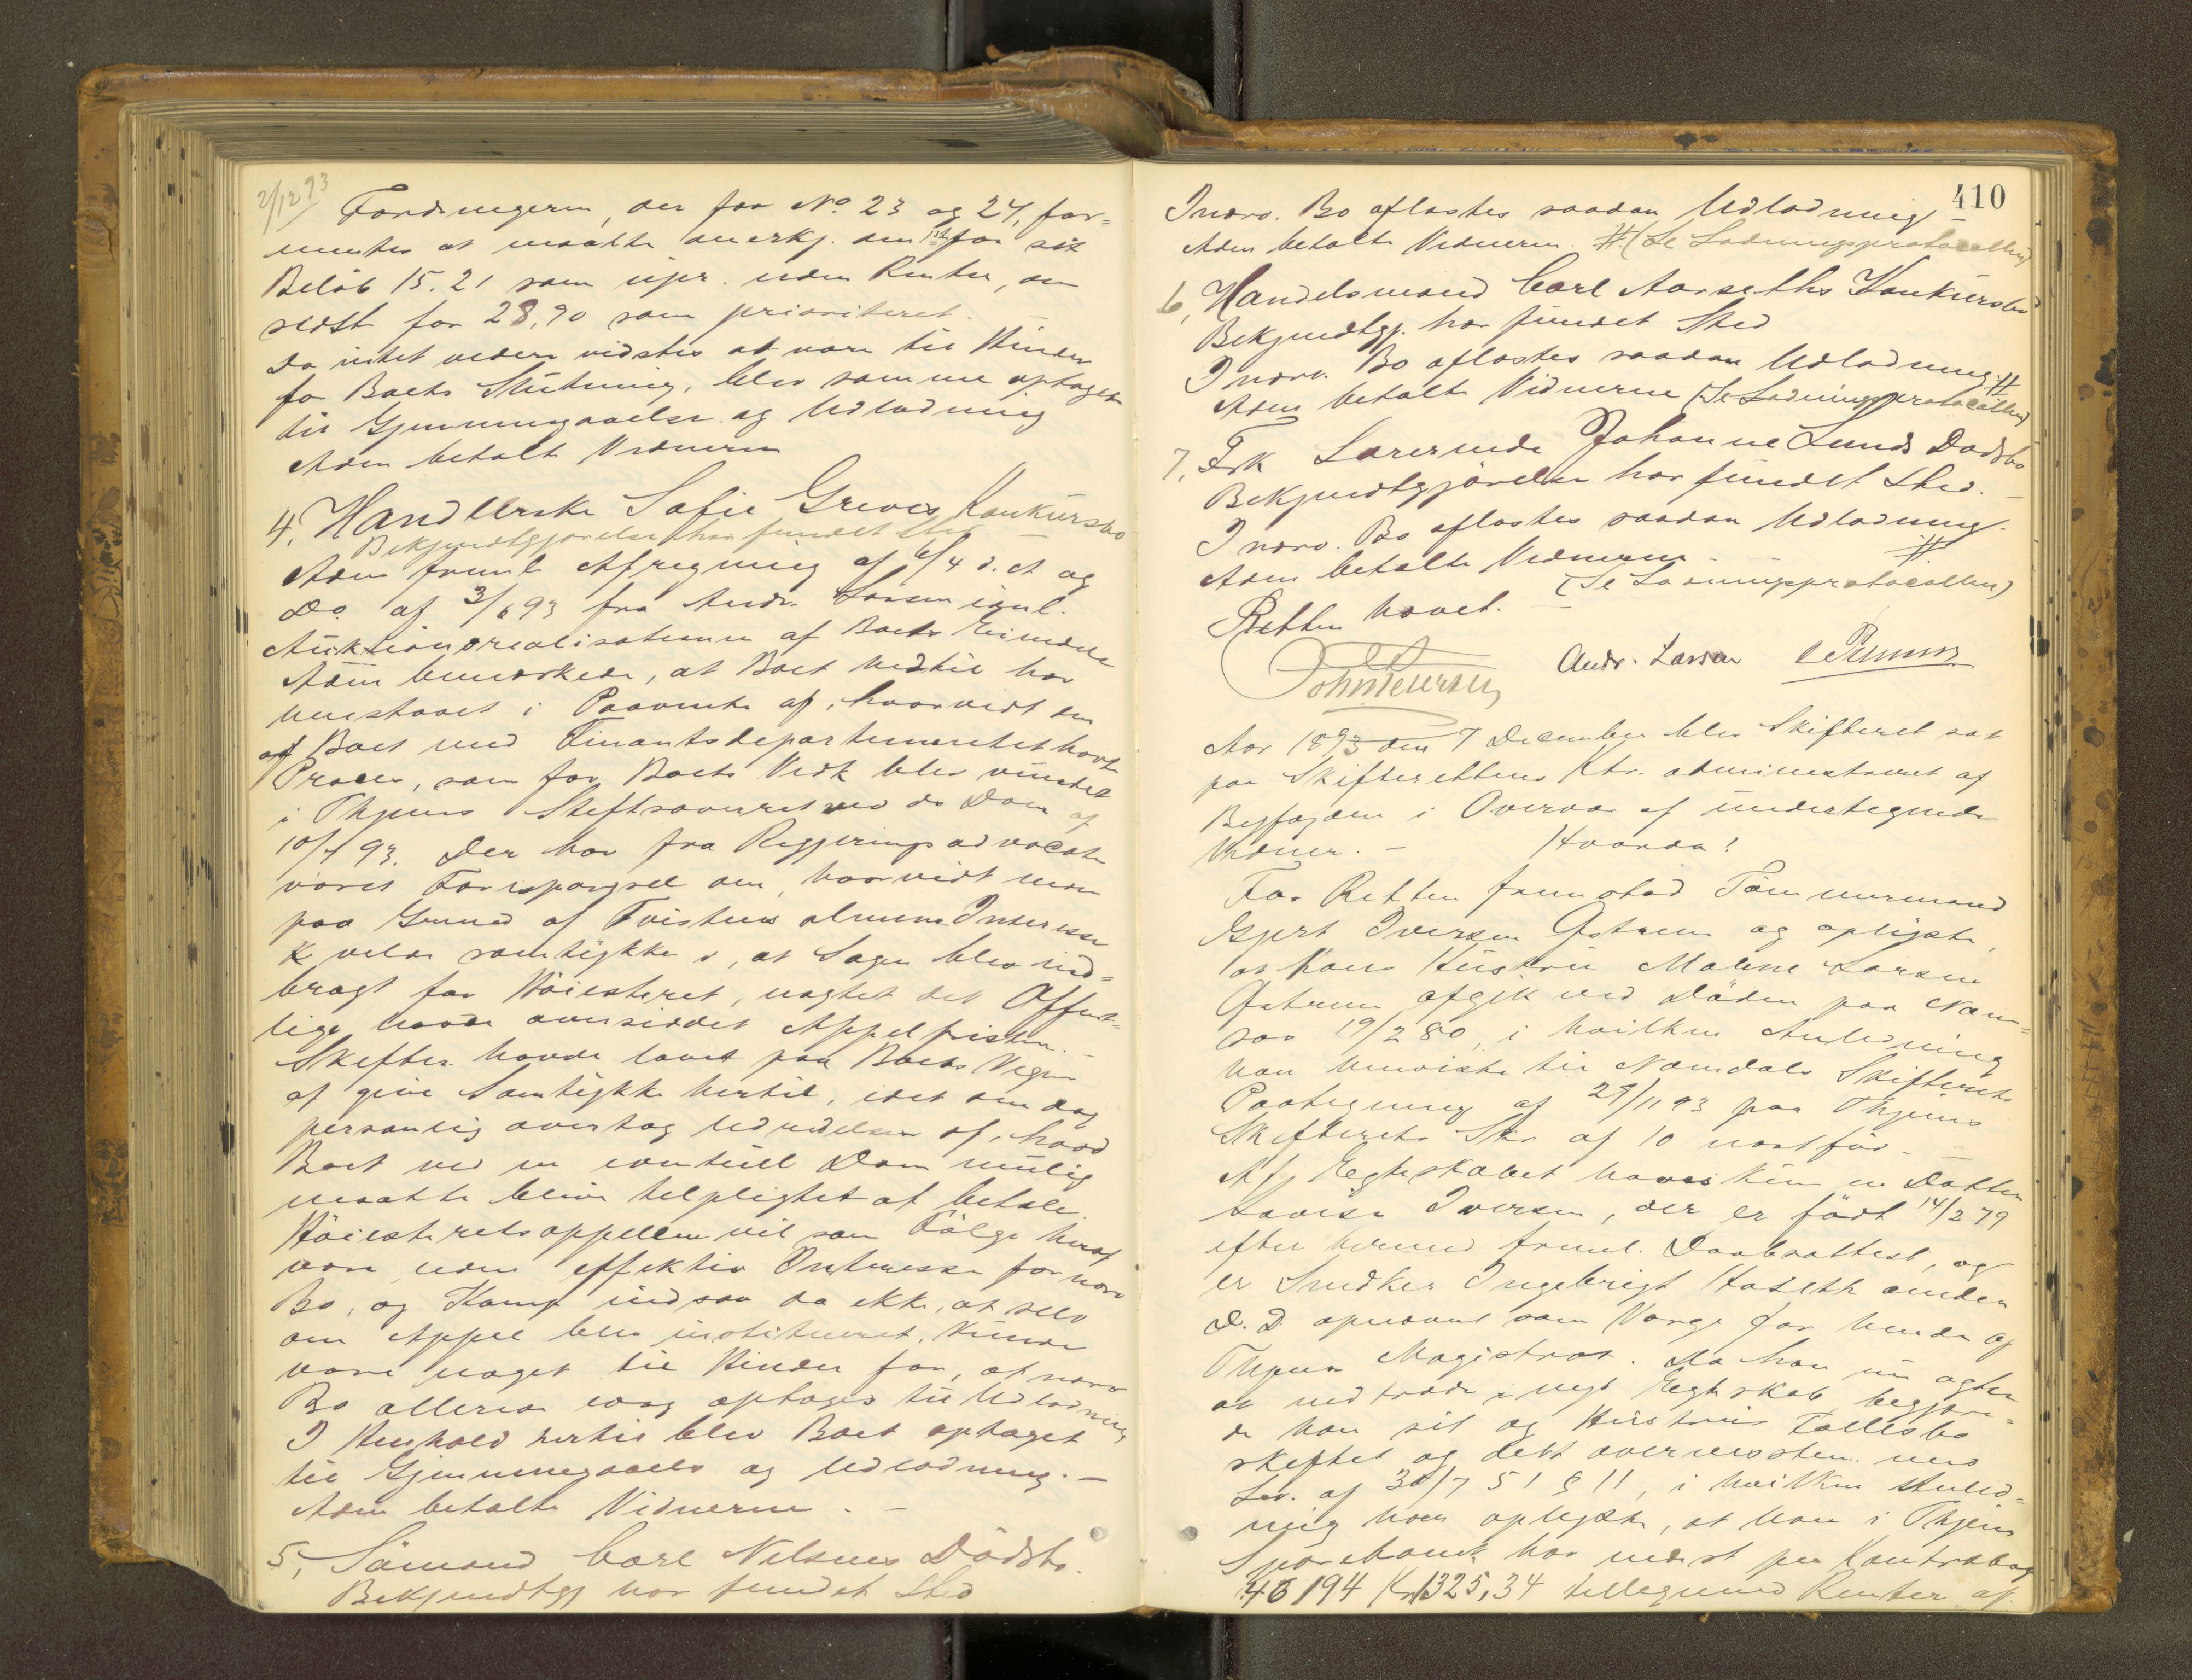 2/12 93
Fordringerne, der for No 23 og 24, for-
mentes at maatte anerkj. den 1ste for sit
Beløb 15.21 som upr. uden Renter, den
sidste for 28,90 som prioriteret. —
Da intet videre vidstes at være til Hinder
for Boets Slutning, blev samme optaget
til Gjennemgaaelse og Udlodning
Adm betalte Vidnerne
4, Handlerske Sofie Greves Konkursbo
Bekjendtgjørelse har fundet Sted
Adm freml Afregning af 6/4 d. A og
Do af 3/6 93 fra Andr. Larsen
Auktionsrealisationen af Boets Eiendele
Adm bemærkede, at Boet hidtil har
henstaaet i Paavente af, hvorvidt den
af Boet med Finantsdepartementet havte
Proces, som for Boets Vedk blev vundet
i Thjems Stiftsoverret ved ds Dom af
10/4 93. Der har fra Regjeringsadvocaten
været Forespørgsel om, hvorvidt man
paa Grund af Tvistens almene Interesse
vilde samtykke i, at Sagen blev ind-
bragt for Høiesteret, uagtet det Offent-
lige havde oversiddet Appelfristen. —
Skifter. havde lovet paa Boets Vegne
at give Samtykke hertil, idet den dog
personlig overtog Udredelsen af, hvad
Boet ved en eventuel Dom mulig
maatte blive tilpligtet at betale.
Høiesteretsappellen vil som Følge heraf
være uden effektiv Interesse for nærv
Bo, og indsaa da ikke, at selv
om Appel blev institueret, kunde
være noget til Hinder for, at nærv
Bo allerede idag optages til Udlodning
I Henhold hertil blev Boet optaget
til Gjennemgaaels og Udlodning. —
Adm betalte Vidnerne. —
5, Sømand Carl Nilsens Dødsbo.
Bekjendtgj har fundet Sted
410
I nærv. Bo aflastes saadan Udlodning —
Adm betalte Vidnerne. # (Se Lodningsprotocollen)
6, Handelsmand Carl Aarseths Konkursbo
Bekjendtgj. har fundet Sted
I nærv. Bo aflastes saadan Udlodning. #
Adm betalte Vidnerne (Se Lodningsprotocollen)
7, Frk Lærerinde Johanne Lunds Dødsbo
Bekjendtgjørelse har fundet Sted. —
I nærv. Bo aflastes saadan Udlodning.
Adm betalte Vidnerne. — — #
(Se Lodningsprotocollen)
Retten hævet. —
Andr. Larsen
Aar 1893 den 7 December blev Skifteret sat
paa Skifterettens Ktr. administreret af
Byfogden i Overvær af undertegnede
Vidner. — Hvorda!
For Retten fremstod Tømmermand
Gjert Iversen Østrem og oplyste,
at hans Hustru Malene Larsen
Østrem afgik ved Døden paa Nam-
sos 19/2 80, i hvilken Anledning
han henviste til Namdals Skifterets
Paategning af 29/11 93 paa Thjems
Skifterets Skr af 10 næstfør. —
Af Egteskabet haves kun en Datter
Lovise Iversen, der er født 14/2 79
efter hermed freml. Daabsattest, og
er Snedker Ingebrigt Haseth under
D. D. opnævnt som Værge for hende af
Thjems Magistrat. Da han nu agter
at indtræde i nyt Egteskab, begjære-
de han sit og Hustrus Fællesbo
skiftet og dets overensstem. med
Lov. af 30/7 51 § 11, i hvilken Anled-
ning han oplyste, at han i Thjems
Sparebank har indest paa Kontrabog
46194 Kr 1325,34 tilligemed Renter af